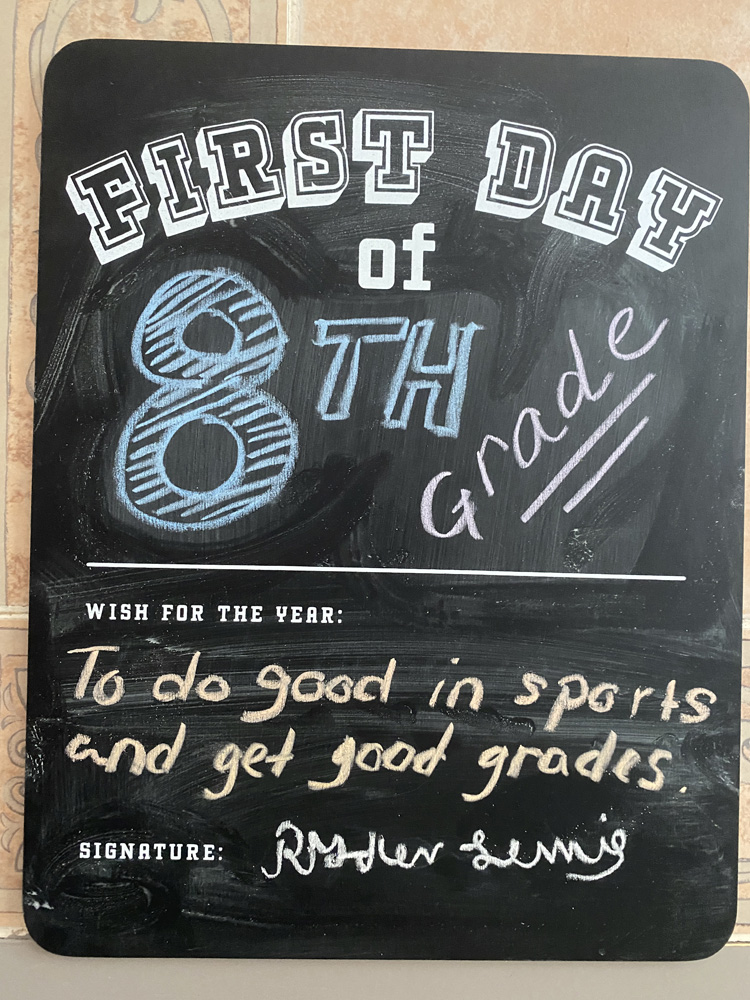 FIRST DAY
of
8TH
Grade
WISH FOR THE YEAR:
To do good in sports
and get good grades.
SIGNATURE: